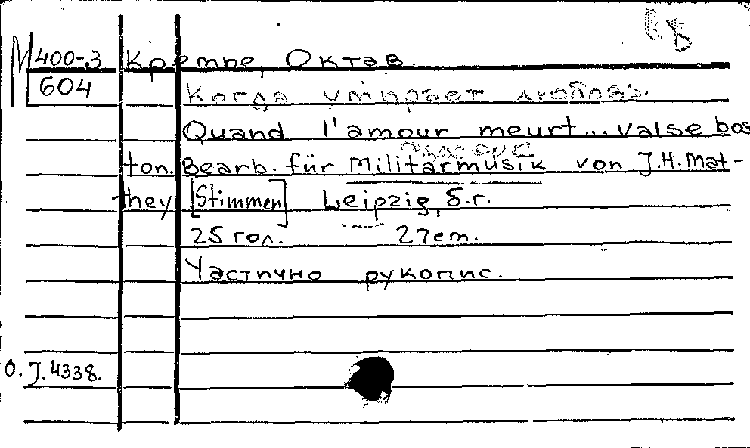 М 400-3 Кремье, Октав
604
Когда умирает любовь.
Quand l'amour meurt... valse bos
ton. Bearb. für Militärmusik von J.H. Mat-
they [Stimmen] Leipzig, б.г.
25 гол. 27 cm.
Частично рукопис.
O. J. 4338.